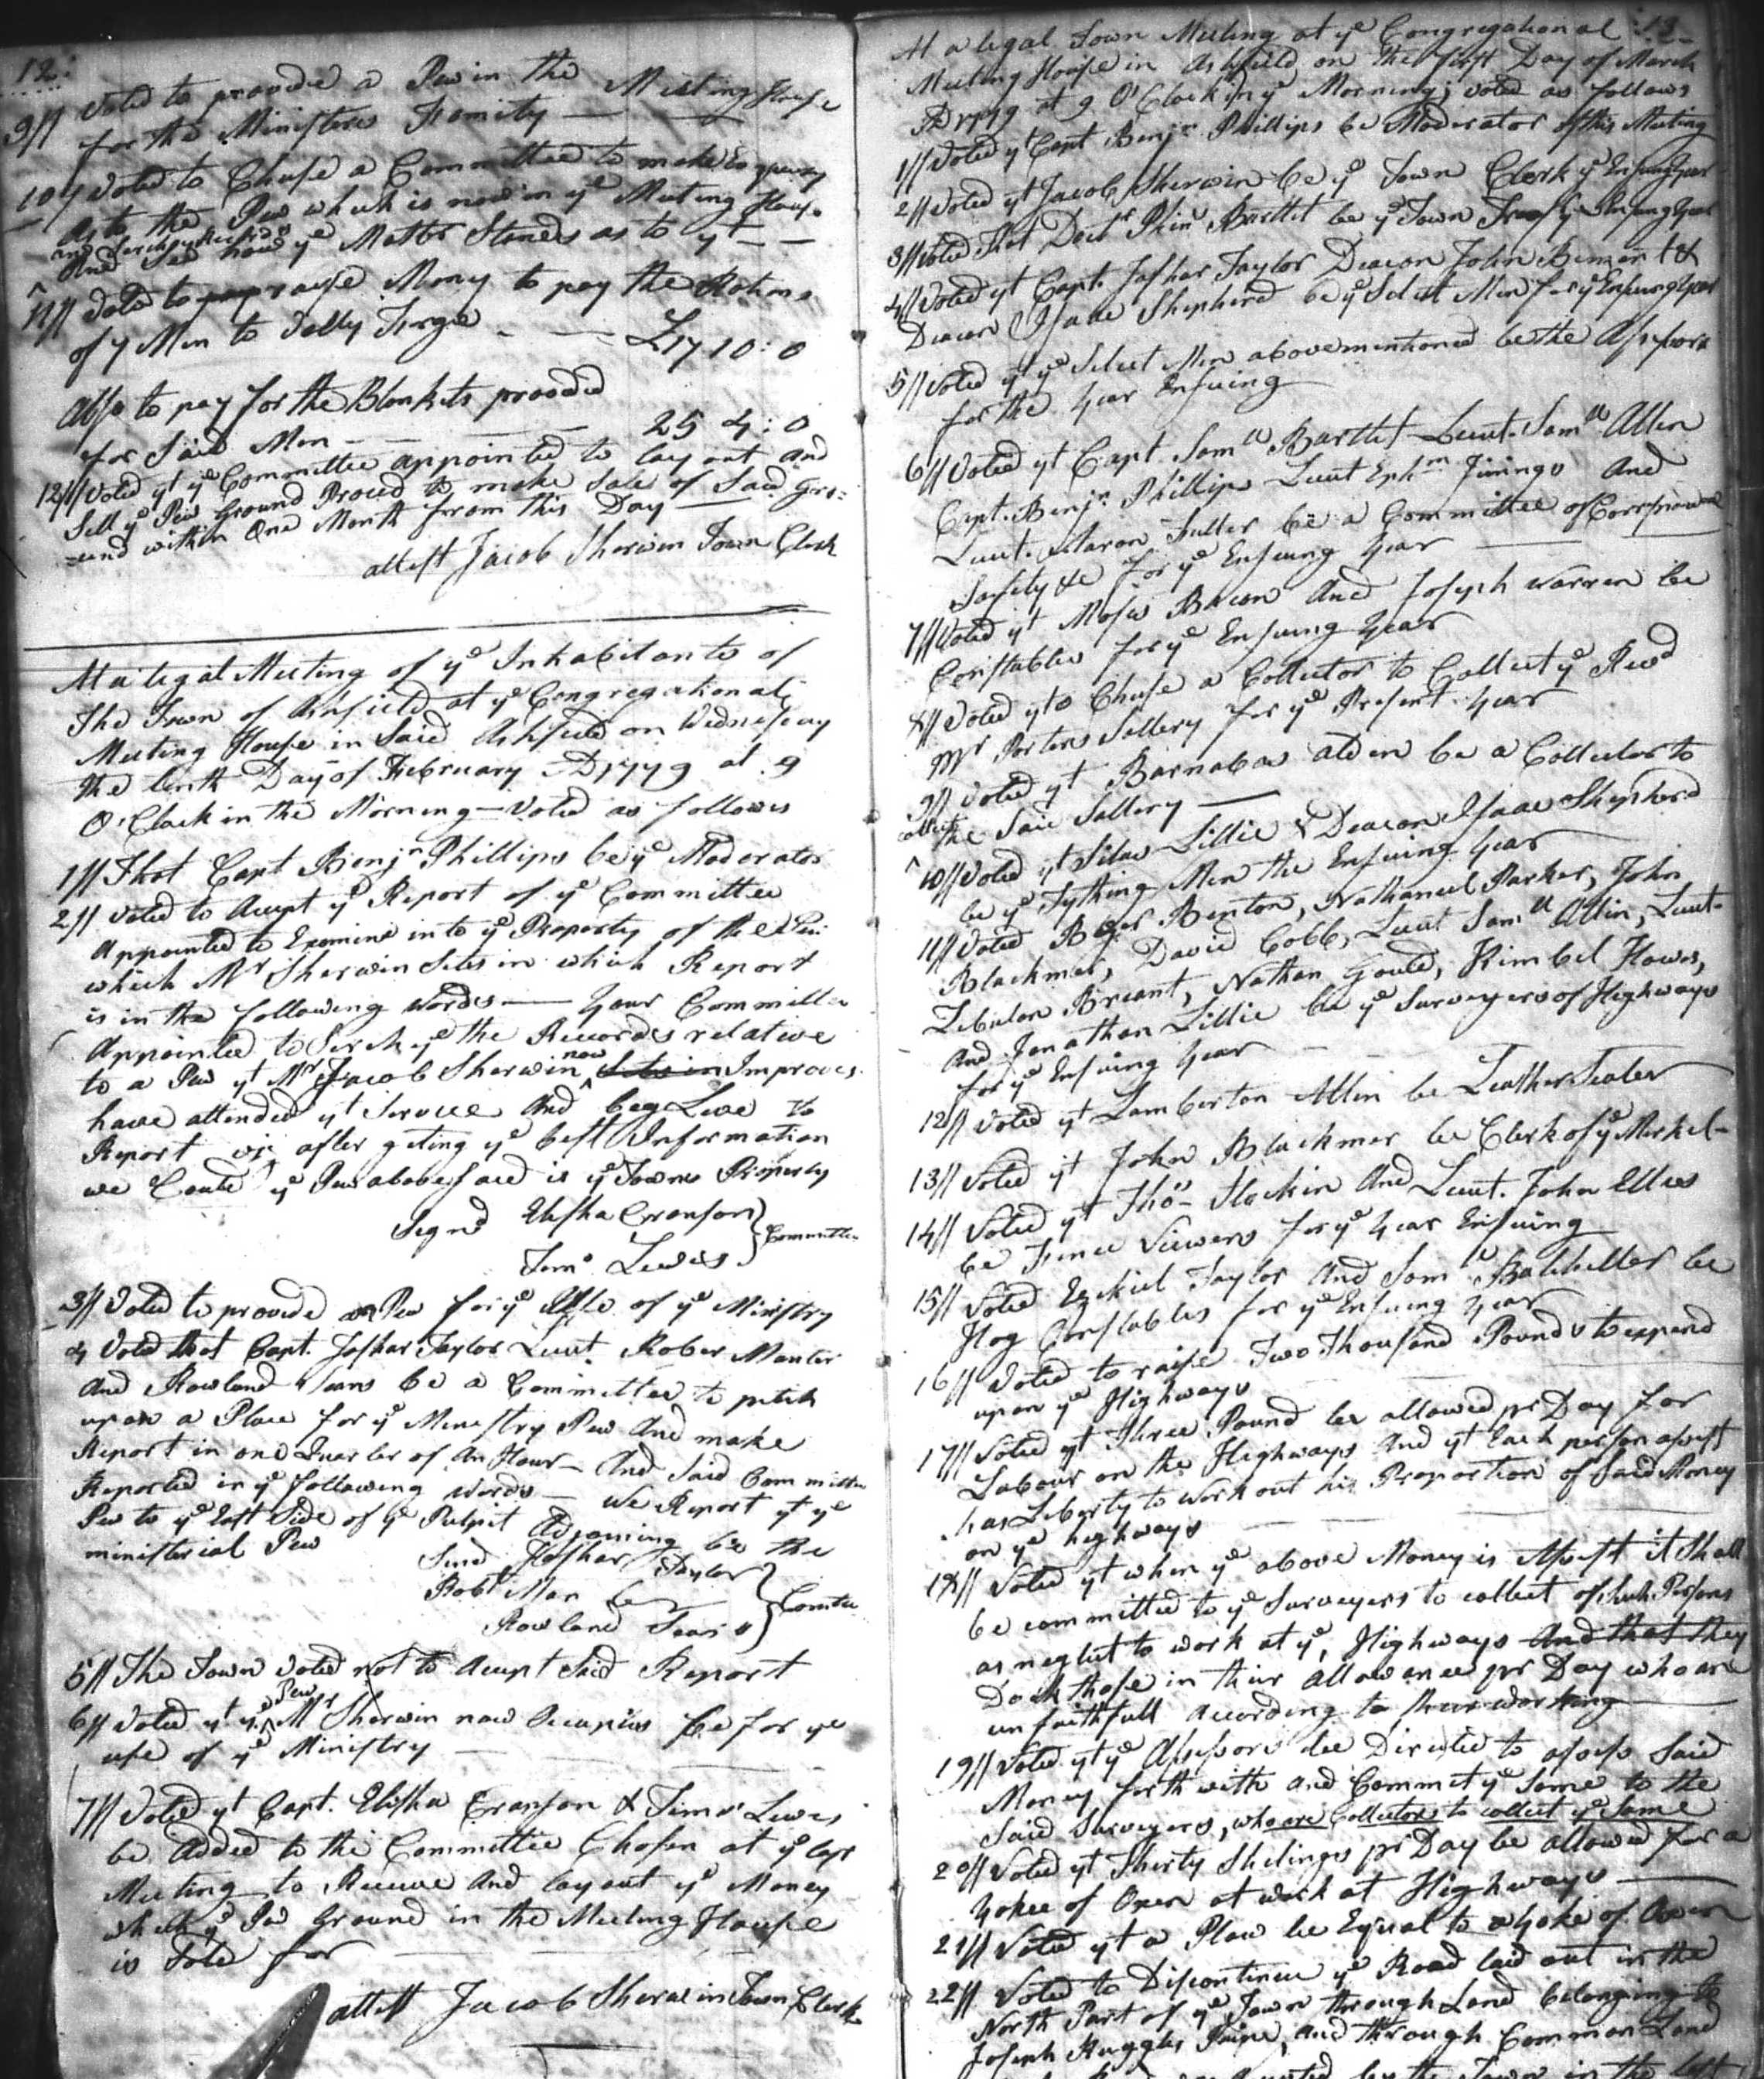 12.
9// Voted to provide a Pew in the Meeting House
for the Ministers Famity
10// Voted to Chuse a Committee to make Enquiry
As to the Pew which is now in ye Meeting House
and Serch ye Records
And See how ye Matter Stands as to yt
11// Voted to raise Mony to pay the Rations
of 7 Men to Vally Forge £17 10:0
Also to pay for the Blankets provided
for Said Men 25 4:0
12// Voted yt ye Committee appointed to lay out and
Sell ye Pew Ground Proced to make Sale of Said Gro=
=und within One Month from this Day
attest Jacob Sherwin Town Clerk
At a legal Meeting of ye Inhabitants of
The Town of Ashfield at ye Congregational
Meeting House in Said Ashfield on Wednesday
the tenth Day of February AD 1779 at 9
O'Clock in the Morning Voted as follows
1// That Capt Benjn Phillips be ye Moderator
2// Voted to Accept ye Report of ye Committee
Appointed to Examine into ye Property of the Pew
which Mr Sherwin Sites in which Report
is in the following words Your Committee
Appointed to Serch ye the Records relative
to a Pew yt Mr Jacob Sherwin now Sits in Improves
have attended yt Service And beg Leve to
Report viz after geting ye best Information
we Could ye Pew abovesaid is ye Towns Property
Signd Elisha Cranson
Timo Lewis } Committee
3// Voted to provide a Pew for ye Use of ye Ministry
4 Voted that Capt. Jasher Taylor Leiut. Rober Manter
And Rowland Sears be a Committee to pitch
upon a Place for ye Ministry Pew And make
Report in one Quarter of An Hour And Said Committee
Reported in ye following words We Report yt ye
Pew to ye East Side of ye Pulpit Adjoining be the
ministerial Pew
Sind Jasher Taylor
Robt Manter
Rowland Sears } Comtee
5// The Town Voted not to Accept Said Report
6// Voted yt ye Pew Mr Sherwin now Occupies be for ye
use of ye Ministry
7// Voted yt Capt. Elisha Cranson & Timo Lewis
be Added to the Committee Chosen at ye last
Meeting to Receive And lay out ye Money
which ye Pew Ground in the Meeting House
is Sold for
attest Jacob Sherwin Town Clerk
13
At a legal Town Meeting at ye Congregational
Meeting House in Ashfield on the first Day of March
AD 1779 at 9 O'Clock in ye Morning; voted as follows
1// Voted yt Capt Benjn Phillips be Moderator of this Meeting
2// Voted yt Jacob Sherwin be ye Town Clerk ye Ensuing Year
3// Voted That Doctr Phins Bartlit be ye Town Treasr ye Ensuing Year
4// Voted yt Capt. Jashar Taylor Deacon John Bement &
Deacon Isaac Shepherd be ye Select Men for ye Ensuing Year
5// Voted yt ye Select Men abovementioned be the Assessors
for the Year Ensuing
6// Voted yt Capt. Samll Bartlet Leiut. Samll Allen
Capt. Benjn Phillips Leiut Ephm Jinings And
Leiut. Aaron Fuller be a Committee of Corrspondence
Safety &c for ye Ensuing Year
7// Voted yt Moses Bacon And Joseph Warren be
Constables for ye Ensuing Year
8// Voted yto Chuse a Collector to Collect ye Revd
Mr Porters Sallery for ye Present Year
9// Voted yt Barnabas alden be a Collector to
collect the Said Sallery
10// Voted yt Silas Lillie & Deacon Isaac Shepherd
be ye Tything Men the Ensuing Year
11// Voted Benton, Nathaniel Parker, John
Blackmar, David Cobb, Leiut Samll Allin, Leiut.
Zebulon Briant, Nathan Gould, Kimbel Howes,
And Jonathan Lillie be ye Surveyers of Highways
for ye Ensuing Year
12// Voted yt Lamberton Allin be Leather Sealer
13// Voted yt John Blackmer be Clerk of ye Merket
14// Voted yt Thos Stockin And Leiut. John Ellis
be Fence Viewers for ye Year Ensuing
15// Voted Ezekiel Taylor And Samll Batcheller be
Hog Constables for ye Ensuing Year
16// Voted to raise Two Thousand Pounds to expend
upon ye Highways
17// Voted yt Three Pound be allowed pr Day for
Labour on the Highways And yt Each person assest
has Liberty to work out his Proportion of Said Money
on ye highways
18// Voted yt when ye above Money is Assest it Shall
be committed to ye Surveyers to collect of such Persons
as neglect to work at ye, Highways And that they
Dock those in their allowance pr Day who are
unfaithfull According to their working
19// Voted yt ye Assessors be Directed to assess Said
Money forth with and Commit ye Same to the
Said Surveyers, who are Collectors to collect ye Same
20// Voted yt Thirty Shilings pr Day be allowed for a
Yokee of Oxen at work at Highways
21// Voted yt a Plow be Equal to a Yoke of Oxen
22// Voted to Discontinue ye Road laid out in the
North Part of ye Town through Land belonging to
Joseph Ruggles Paine, and through Common Land
by the Town in the last